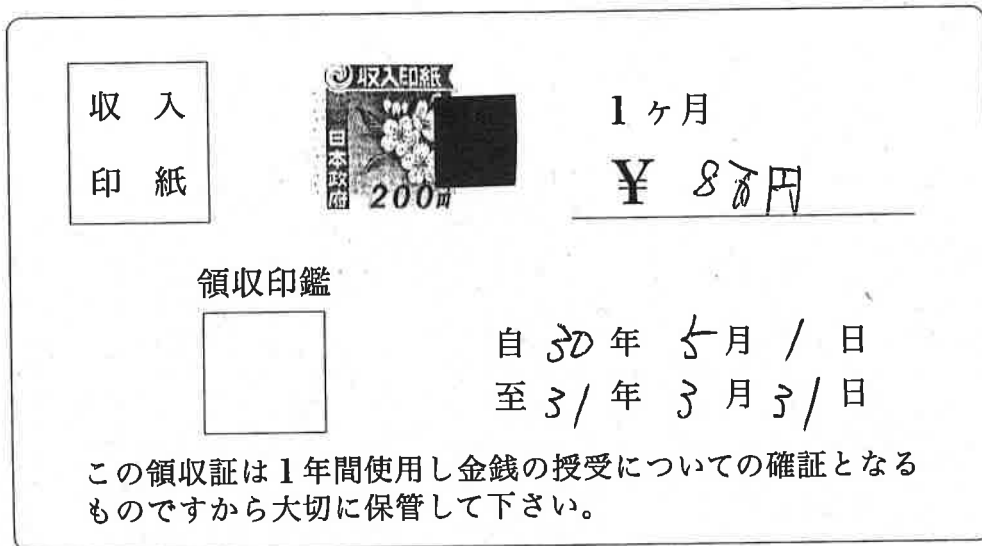 収入
印紙
収入印紙
日本政府
200円
1ヶ月
¥ 8万円
領収印鑑
自 30年 5月 1日
至 31年 3月 31日
この領収証は1年間使用し金銭の授受についての確証となる
ものですから大切に保管して下さい。